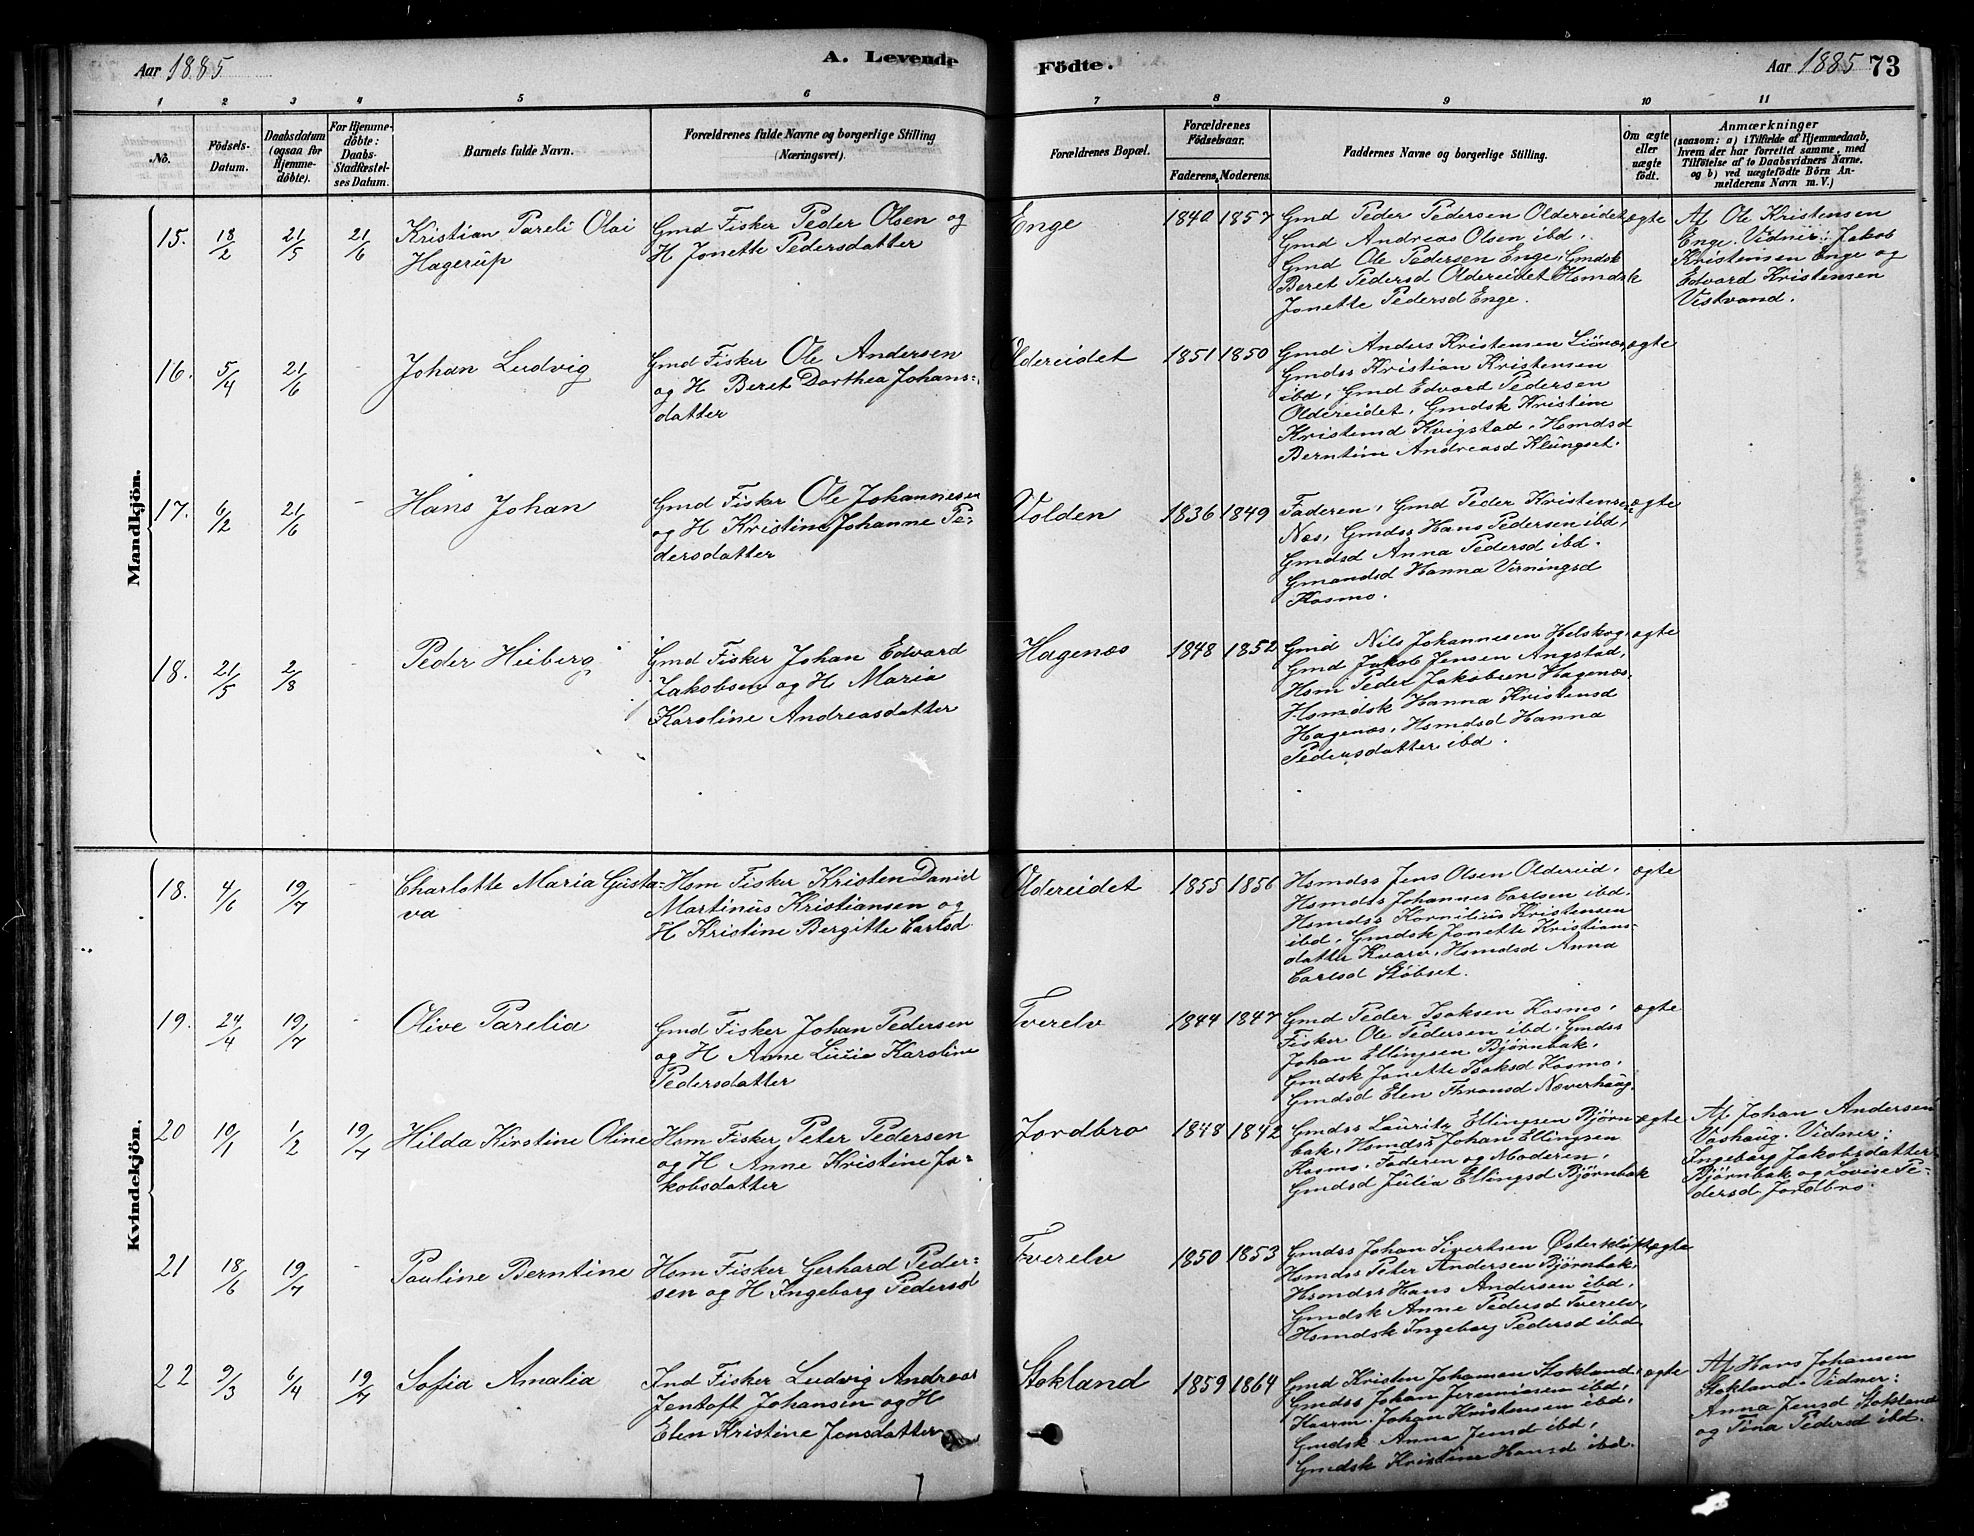 Aar 1885
A. Levende
Födte.
Aar 1885 73
1 2 3 4 5 6 7 8 9 10 11
No.
Födsels-
Datum.
Daabsdatum
(ogsaa for
Hjemme-
döbte).
For Hjemme-
döbte:
Daabs-
Stadfæstel-
ses Datum.
Barnets fulde Navn.
Forældrenes fulde Navne og borgerlige Stilling
(Næringsvei).
Forældrenes Bopæl.
Forældrenes
Födselsaar.
Faderens. Moderens.
Faddernes Navne og borgerlige Stilling.
Om ægte
eller
uægte
födt.
Anmærkninger
(saasom: a) i Tilfælde af Hjemmedaab,
hvem der har forrettet samme, med
Tilföielse af to Daabsvidners Navne.
og b) ved uægtefödte Börn An-
melderens Navn m. V.)
Mandkjön.
15. 18/2 21/5 21/6
Kristian Pareli Olai
Hagerup
Gmd Fisker Peder Olsen og
H Jonette Pedersdatter
Enge
1840 1857
Gmd Peder Pedersen Oldereidet
Gmd Andreas Olsen ibd.
Gmd Ole Pedersen Enge, Gmdsk
Beret Pedersd Oldereidet Hsmdsk
Jonette Pedersd Enge.
ægte
Af Ole Kristensen
Enge. Vidner: Jakob
Kristensen Enge og
Edvard Kristensen
Vestvand.
16. 5/4 21/6 -
Johan Ludvig
Gmd Fisker Ole Andersen
og H Beret Dorthea Johans-
datter
Oldereidet
1851 1850
Gmd Anders Kristensen Liönæs
Gmdss Kristian Kristensen
ibd, Gmd Edvard Pedersen
Oldereidet, Gmdsk Kristine
Kristensd Kvigstad, Hsmdsd
Berntine Andreasd Klungset.
ægte
17. 6/2 21/6 -
Hans Johan
Gmd Fisker Ole Johannesen
og H Kristine Johanne Pe-
dersdatter
Volden
1836 1849
Faderen, Gmd Peder Kristensen
Næs, Gmdss Hans Pedersen ibd,
Gmdsd Anna Pedersd ibd.
Gmandsd Hanna Verningsd
Kosmo.
ægte
18. 21/5 2/8 -
Peder Heiberg
Gmd Fisker Johan Edvard
Jakobsen og H Maria
Karoline Andreasdatter
Hagenæs
1848 1852
Gmd Nils Johannesen Helskog,
Gmd Jakob Jensen Angstad,
Hsm Peder Jakobsen Hagenæs,
Hsmdsk Hanna Kristensd
Hagenæs, Hsmdsd Hanna
Pedersdatter ibd.
ægte
Kvindekjön.
18. 4/6 19/7 -
Charlotte Maria Gusta-
va
Hsm Fisker Kristen Daniel
Martinus Kristiansen og
H Kristine Bergitte Carlsd.
Oldereidet
1855 1856
Hsmdss Jens Olsen Oldereid,
Hsmdss Johannes Carlsen ibd.
Hsmdss Kornilius Kristensen
ibd, Gmdsk Jonette Kristians-
datter Kvarv, Hsmdsd Anna
Carlsd Stöbset.
ægte
19. 24/4 19/7 -
Olive Parelia
Gmd Fisker Johan Pedersen
og H Anne Lusia Karoline
Pedersdatter
Tverelv
1844 1847
Gmd Peder Isaksen Kosmo,
Fisker Ole Pedersen ibd, Gmdss
Johan Ellingsen Bjørnbak,
Gmdsk Jonette Isaksd Kosmo,
Gmdsd Elen Thronsd Næverhaug.
ægte
20 10/1 1/2 19/7
Hilda Kirstine Oline
Hsm Fisker Peter Pedersen
og H Anne Kristine Ja-
kobsdatter
Jordbro
1848 1842
Gmdss Lauritz Ellingsen Bjørn-
bak, Hsmdss Johan Ellingsen
Kosmo, Faderen og Moderen,
Gmdsd Julia Ellingsd Bjørnbak
ægte
Af Johan Andersen
Vashaug. Vidner:
Ingeborg Jakobsdatter
Bjørnbak og Lovise Pe-
dersd Jordbro.
21 18/6 19/7 -
Pauline Berntine
Hsm Fisker Gerhard Peder-
sen og H Ingeborg Pedersd
Tverelv
1850 1853
Gmdss Johan Sivertsen Østerkløft
Hsmdss Peter Andersen Bjørnbak,
Hsmdss Hans Andersen ibd,
Gmdsk Anne Pedersd Tverelv,
Hsmdsk Ingeborg Pedersd ibd.
ægte
22 9/3 6/4 19/7
Sofia Amalia
Ind Fisker Ludvig Andreas
Jentoft Johansen og H
Elen Kristine Jensdatter
Stokland
1859 1864
Gmd Kristen Johansen Stokland,
Gmdss Johan Jeremiasen ibd,
Kaarm. Johan Kristensen ibd,
Gmdsk Anna Jensd ibd,
Gmdsk Kristine Hansd ibd.
ægte
Af Hans Johansen
Stokland. Vidner:
Anna Jensd Stokland
og Tina Pedersd ibd.